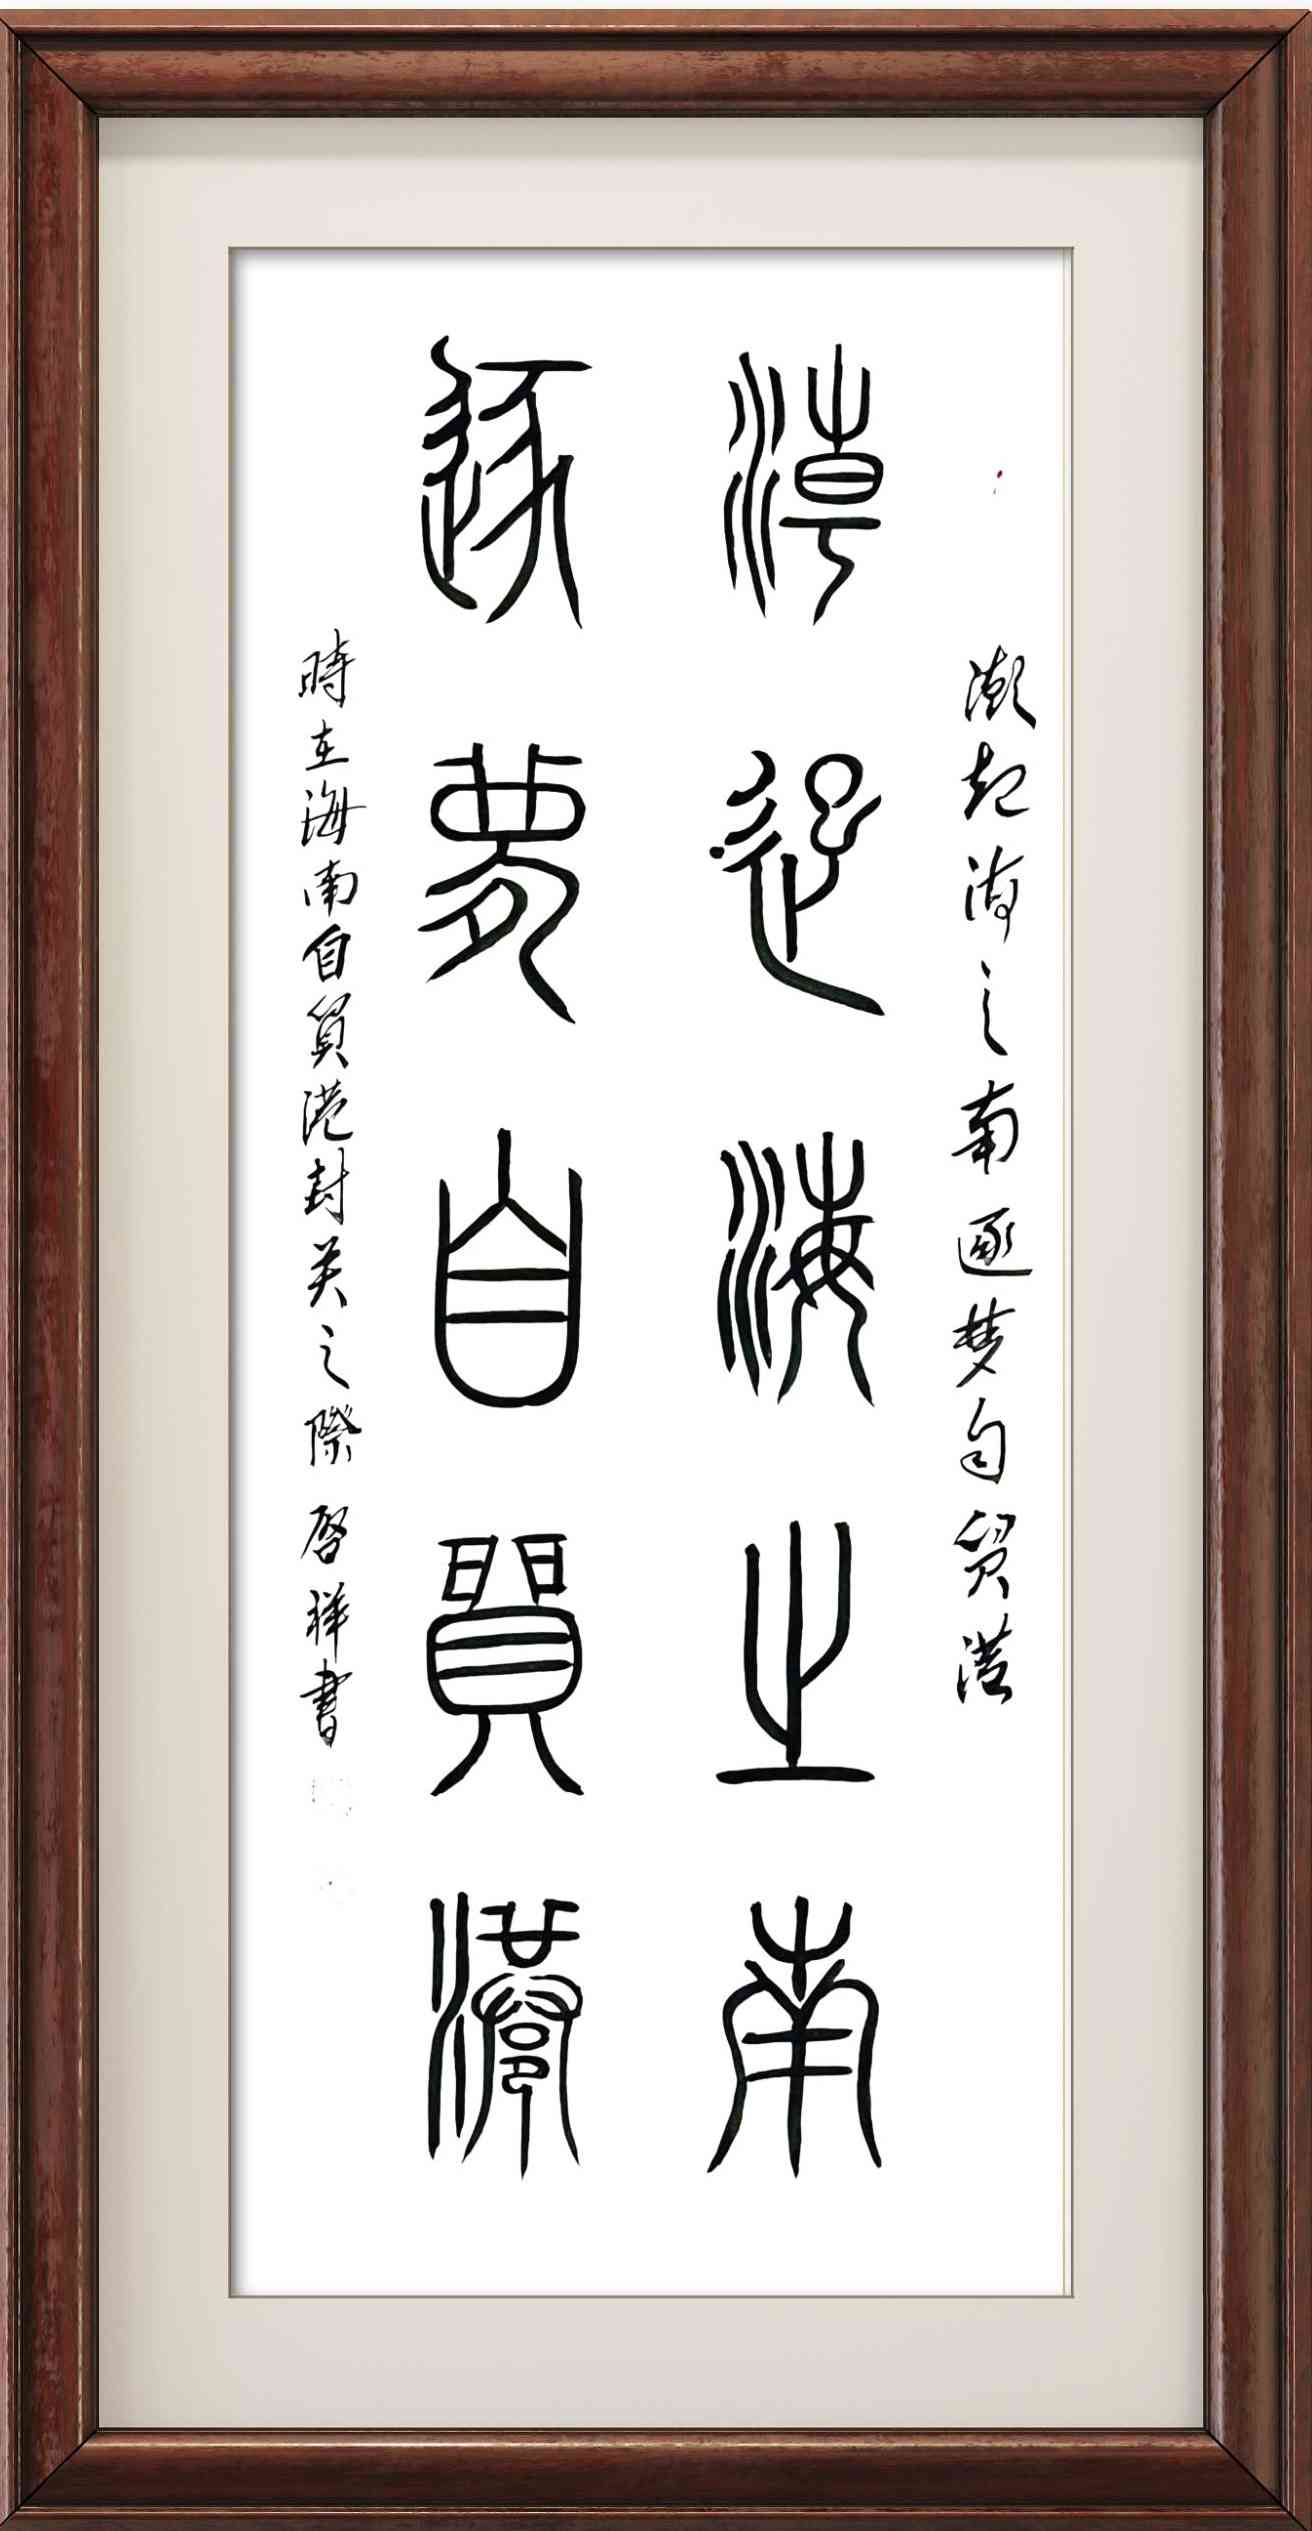 潮起海之南逐梦自贸港
潮起海之南
逐夢自貿港
時在海南自貿港封关之際 啓祥書